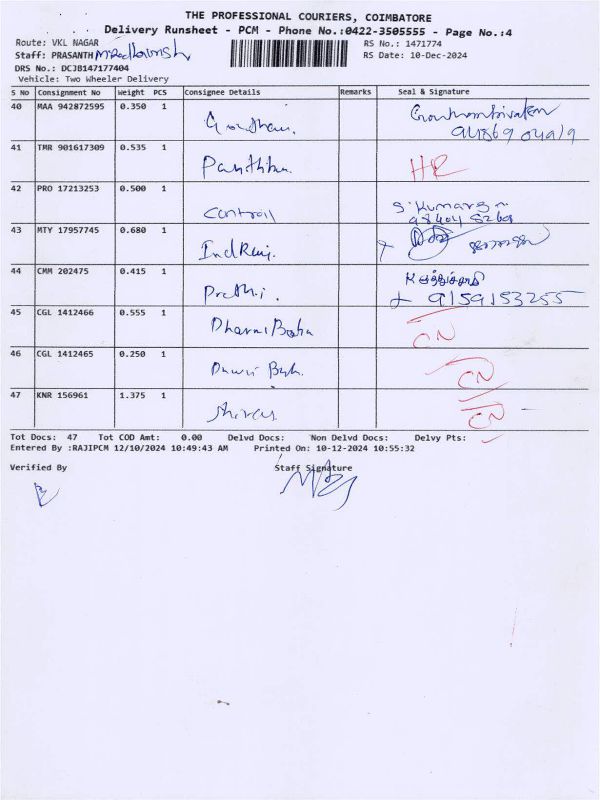 THE PROFESSIONAL COURIERS, COIMBATORE
Delivery Runsheet - PCM - Phone No.:0422-3505555 - Page No.:4
Route: VKL NAGAR
RS No.: 1471774
Staff: PRASANTH
RS Date: 10-Dec-2024
DRS No.: DCJB147177404
Vehicle: Two Wheeler Delivery
S No Consignment No Weight PCS Consignee Details Remarks Seal & Signature
40 MAA 942872595 0.350 1
41 TMR 901617309 0.535 1 HR
42 PRO 17213253 0.500 1
43 MTY 17957745 0.680 1
44 CMM 202475 0.415 1 Prethi.
9159153255
45 CGL 1412466 0.555 1 CN
46 CGL 1412465 0.250 1 CN
47 KNR 156961 1.375 1 CN
Tot Docs: 47 Tot COD Amt: 0.00 Delvd Docs: Non Delvd Docs: Delvy Pts:
Entered By :RAJIPCM 12/10/2024 10:49:43 AM Printed On: 10-12-2024 10:55:32
Verified By Staff Signature